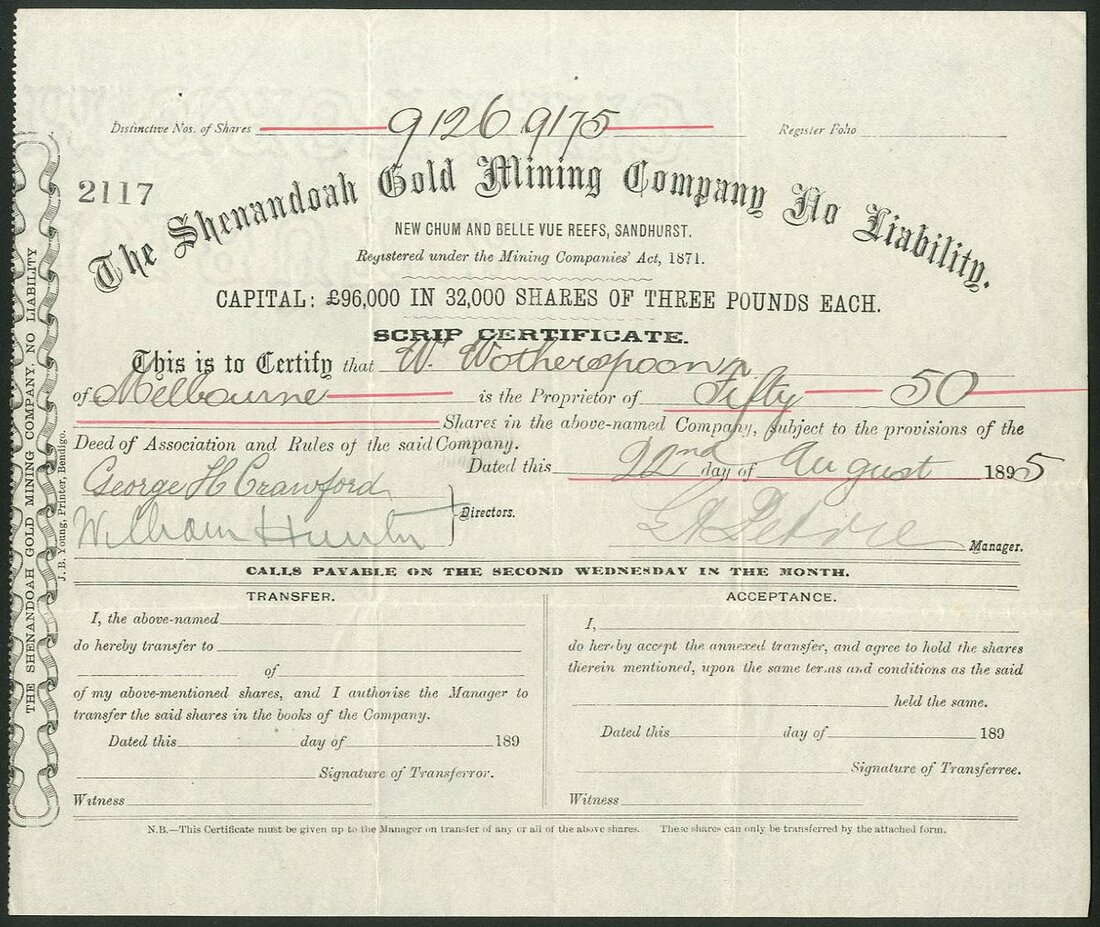 Distinctive Nos. of Shares 9126 9175 Register Folio
2117
The Shenandoah Gold Mining Company No Liability.
NEW CHUM AND BELLE VUE REEFS, SANDHURST.
Registered under the Mining Companies' Act, 1871.
CAPITAL: £96,000 IN 32,000 SHARES OF THREE POUNDS EACH.
SCRIP CERTIFICATE.
This is to Certify that W. Wotherspoon
of Melbourne is the Proprietor of Fifty 50
Shares in the above-named Company, subject to the provisions of the
Deed of Association and Rules of the said Company.
Dated this 22nd day of August 1895
George H Crawford
William Hunter
Directors.
Manager.
CALLS PAYABLE ON THE SECOND WEDNESDAY IN THE MONTH.
TRANSFER.
I, the above-named
do hereby transfer to
of
of my above-mentioned shares, and I authorise the Manager to
transfer the said shares in the books of the Company.
Dated this day of 189
Signature of Transferror.
Witness
ACCEPTANCE.
I,
do hereby accept the annexed transfer, and agree to hold the shares
therein mentioned, upon the same terms and conditions as the said
held the same.
Dated this day of 189
Signature of Transferree.
Witness
N.B.—This Certificate must be given up to the Manager on transfer of any or all of the above shares. These shares can only be transferred by the attached form.
THE SHENANDOAH GOLD MINING COMPANY, NO LIABILITY
J. B. Young, Printer, Bendigo.